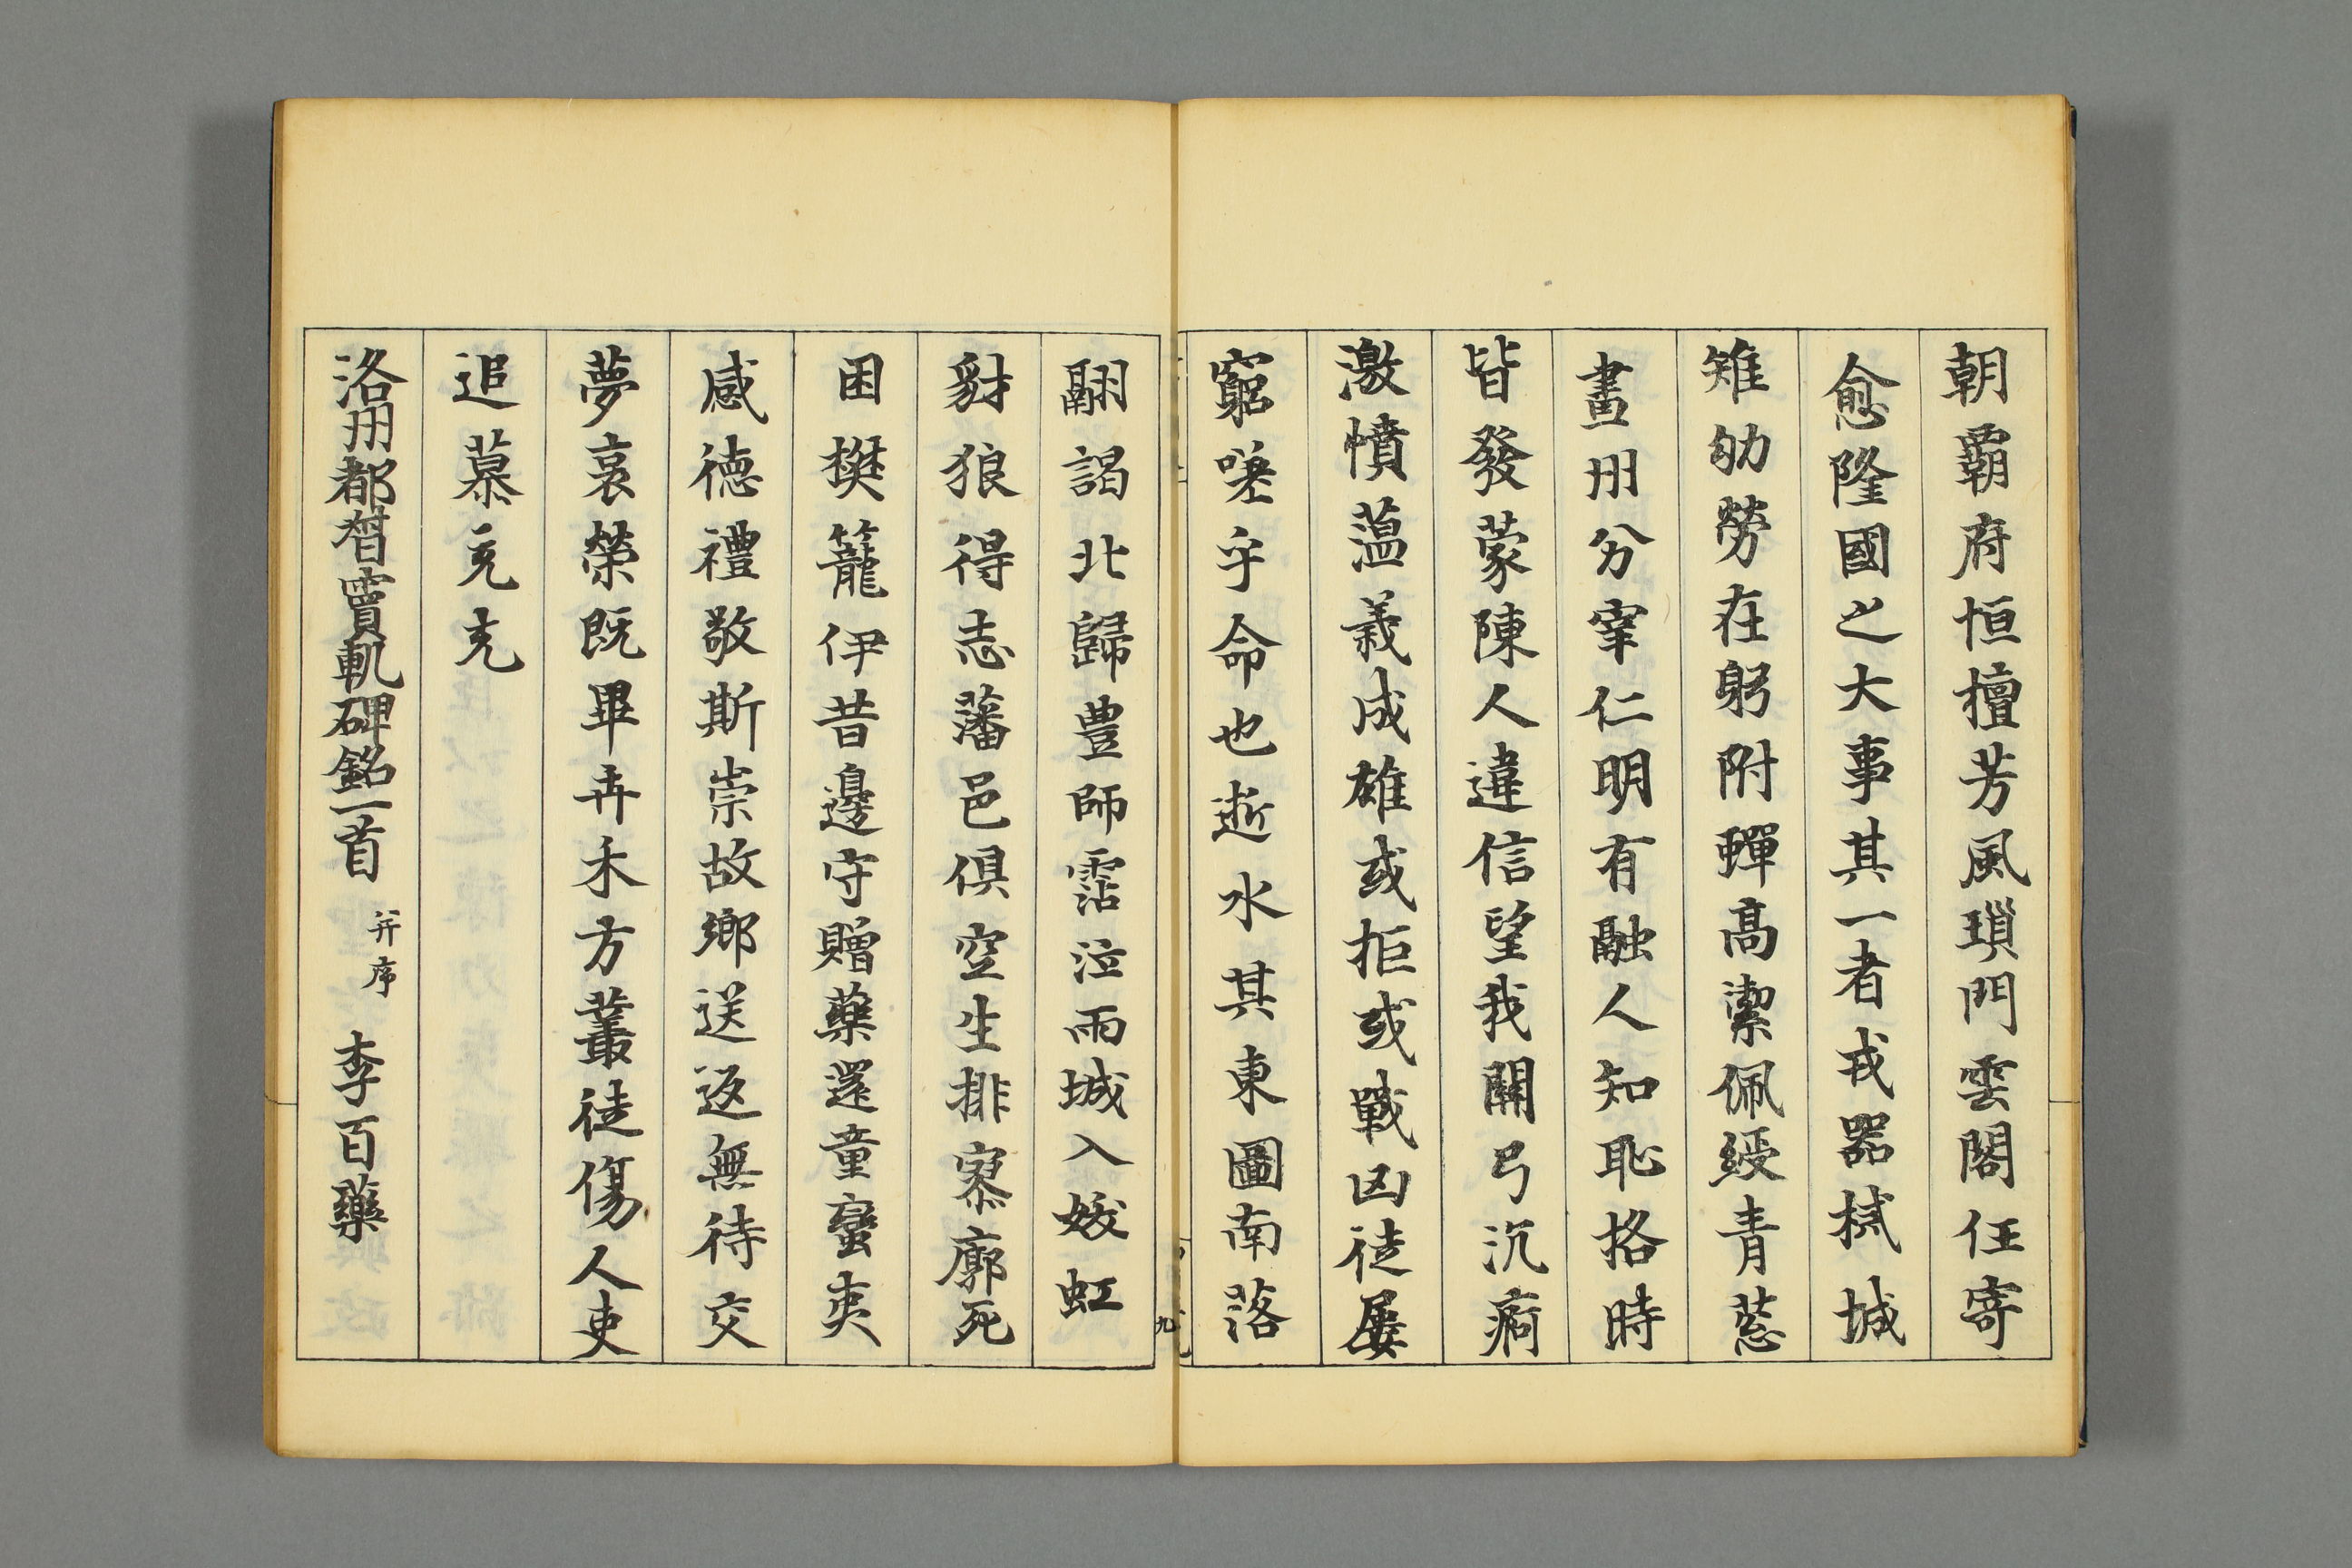 朝霸府恒擅芳風瑣門雲閣任寄
愈隆國之大事其一者戎器棫城
雉劬勞在躬附蟬高潔佩綬青蔥
畫州分宰仁明有融人知恥格時
皆發蒙陳人違信望我關弓沉痾
激憤薀義成雄或拒或戰凶徒屢
窮嗟乎命也逝水其東圖南落
翮謁北歸豊師霑泣雨城入妖虹
豺狼得志藩邑俱空生排寮廓死
困樊籠伊昔邊守贈藥還童蠻夷
感德禮敬斯崇故鄉送返無待交
夢哀榮既畢卉木方叢徒傷人吏
追慕充充
洛州都督竇軌碑銘一首 并序 李百藥
九